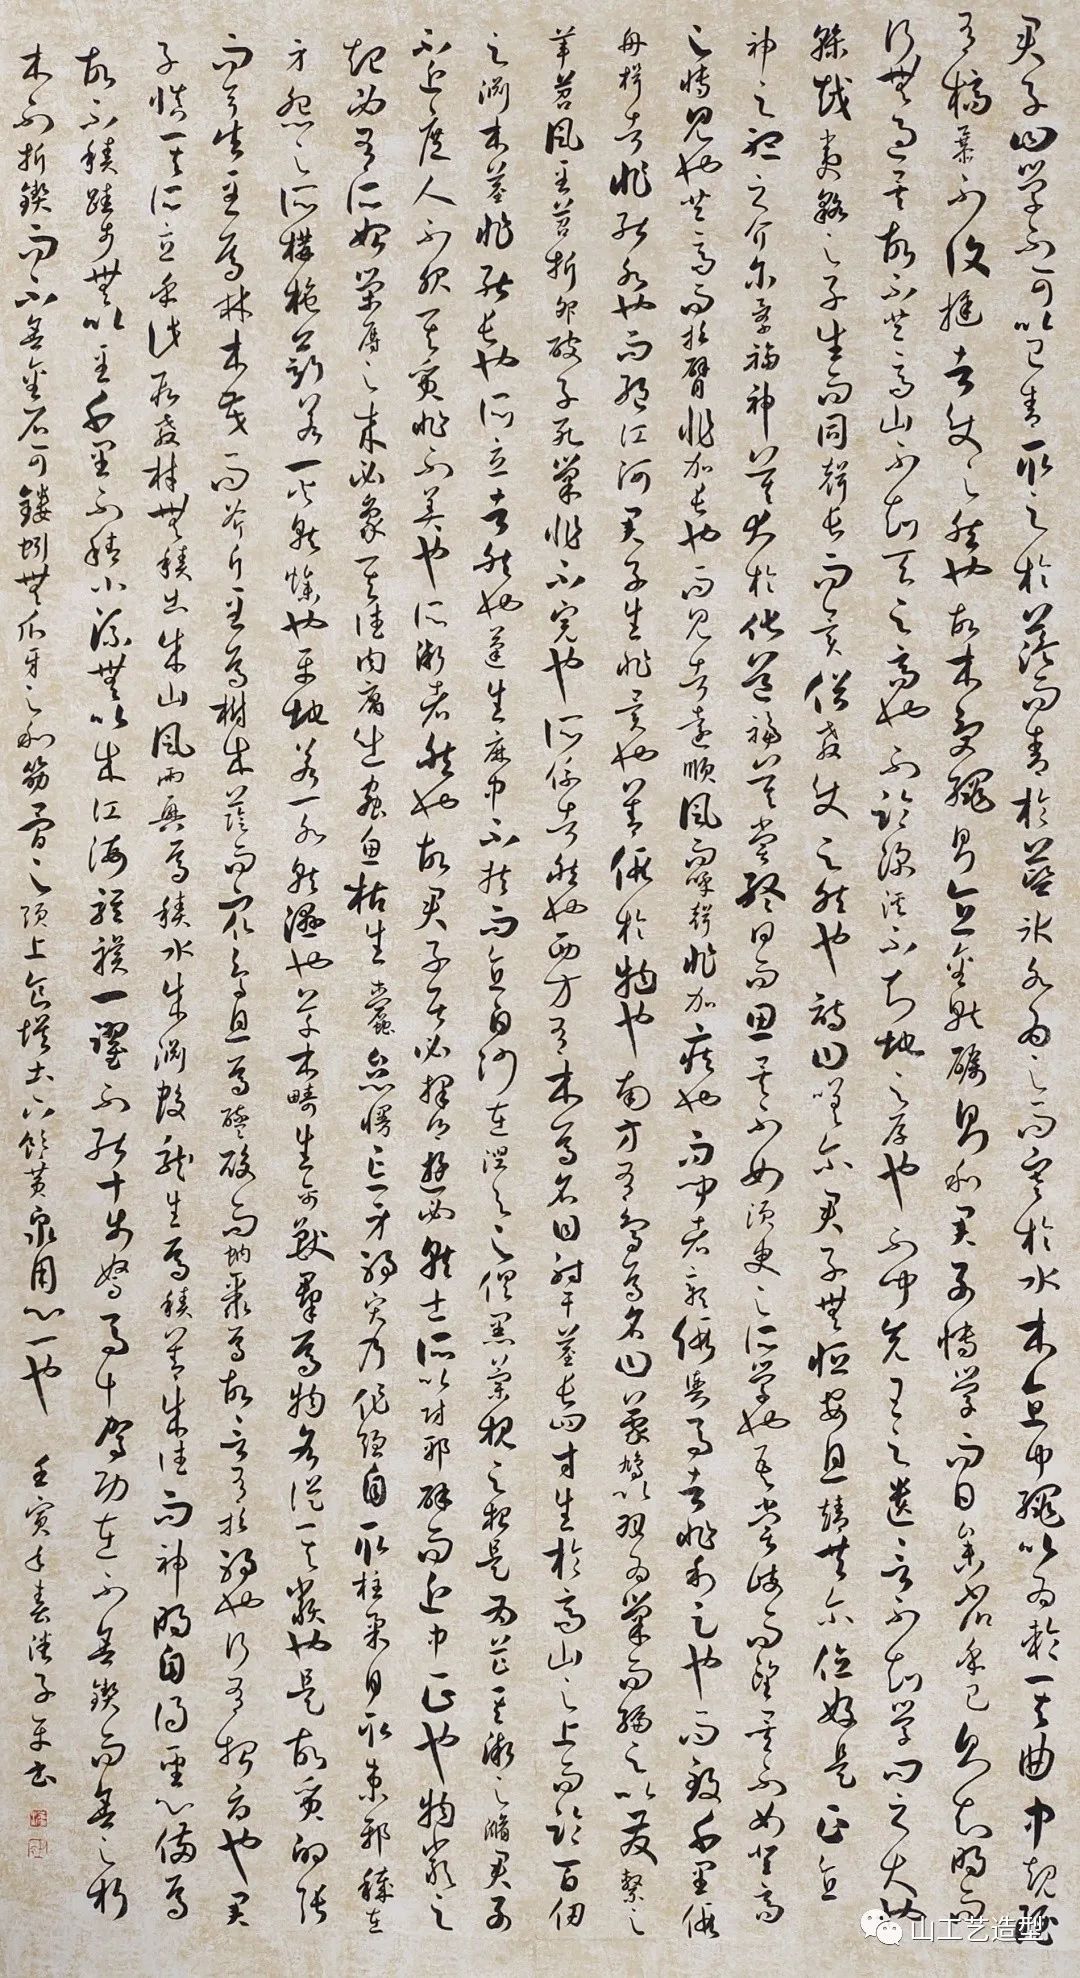 君子曰學不可以已青取之於藍而青於藍冰水為之而寒於水木直中繩以為輪其曲中規雖
有槁暴不復挺者使之然也故木受繩則直金就礪則利君子博學而日參省乎己則知明而
行無過矣故不登高山不知天之高也不臨深溪不知地之厚也不聞先王之遺言不知學問之大也
於越夷貉之子生而同聲長而異俗教使之然也詩曰嗟爾君子無恒安息靖共爾位好是正直
神之聽之介爾景福神莫大於化道福莫 嘗終日而思矣不如須臾之所學也吾嘗跂而望矣不如登高
之博見也登高而招臂非加長也而見者遠順風而呼聲非加疾也而聞者彰假輿馬者非利足也而致千里假
舟楫者非能水也而絕江河君子生非異也善假於物也南方有鳥焉名曰蒙鳩以羽為巢而編之以髮繫之
葦苕風至苕折卵破子死巢非不完也所係者然也西方有木焉名曰射干莖長四寸生於高山之上而臨百仞
之淵木莖非能長也所立者然也蓬生麻中不扶而直白沙在涅與之俱黑蘭槐之根是為芷其漸之滫君子
不近庶人不服其質非不美也所漸者然也故君子居必擇鄉遊必就士所以防邪辟而近中正也物類之
起必有所始榮辱之來必象其德肉腐生蟲魚枯生蠹怠慢忘身禍災乃作強自取柱柔自取束邪穢在
身怨之所構施薪若一火就燥也平地若一水就濕也草木疇生禽獸群焉物各從其類也是故質的張
而弓矢至焉林木茂而斧斤至焉樹木蔭而眾鳥息焉醯酸而蚋聚焉故言有招禍也行有招辱也君
子慎其所立乎 積土成山風雨興焉積水成淵蛟龍生焉積善成德而神明自得聖心備焉
故不積跬步無以至千里不積小流無以成江海騏驥一躍不能十步駑馬十駕功在不舍鍥而舍之朽
木不折鍥而不舍金石可鏤蚓無爪牙之利筋骨之強上食埃土下飲黃泉用心一也 壬寅年春 書
山工艺造型